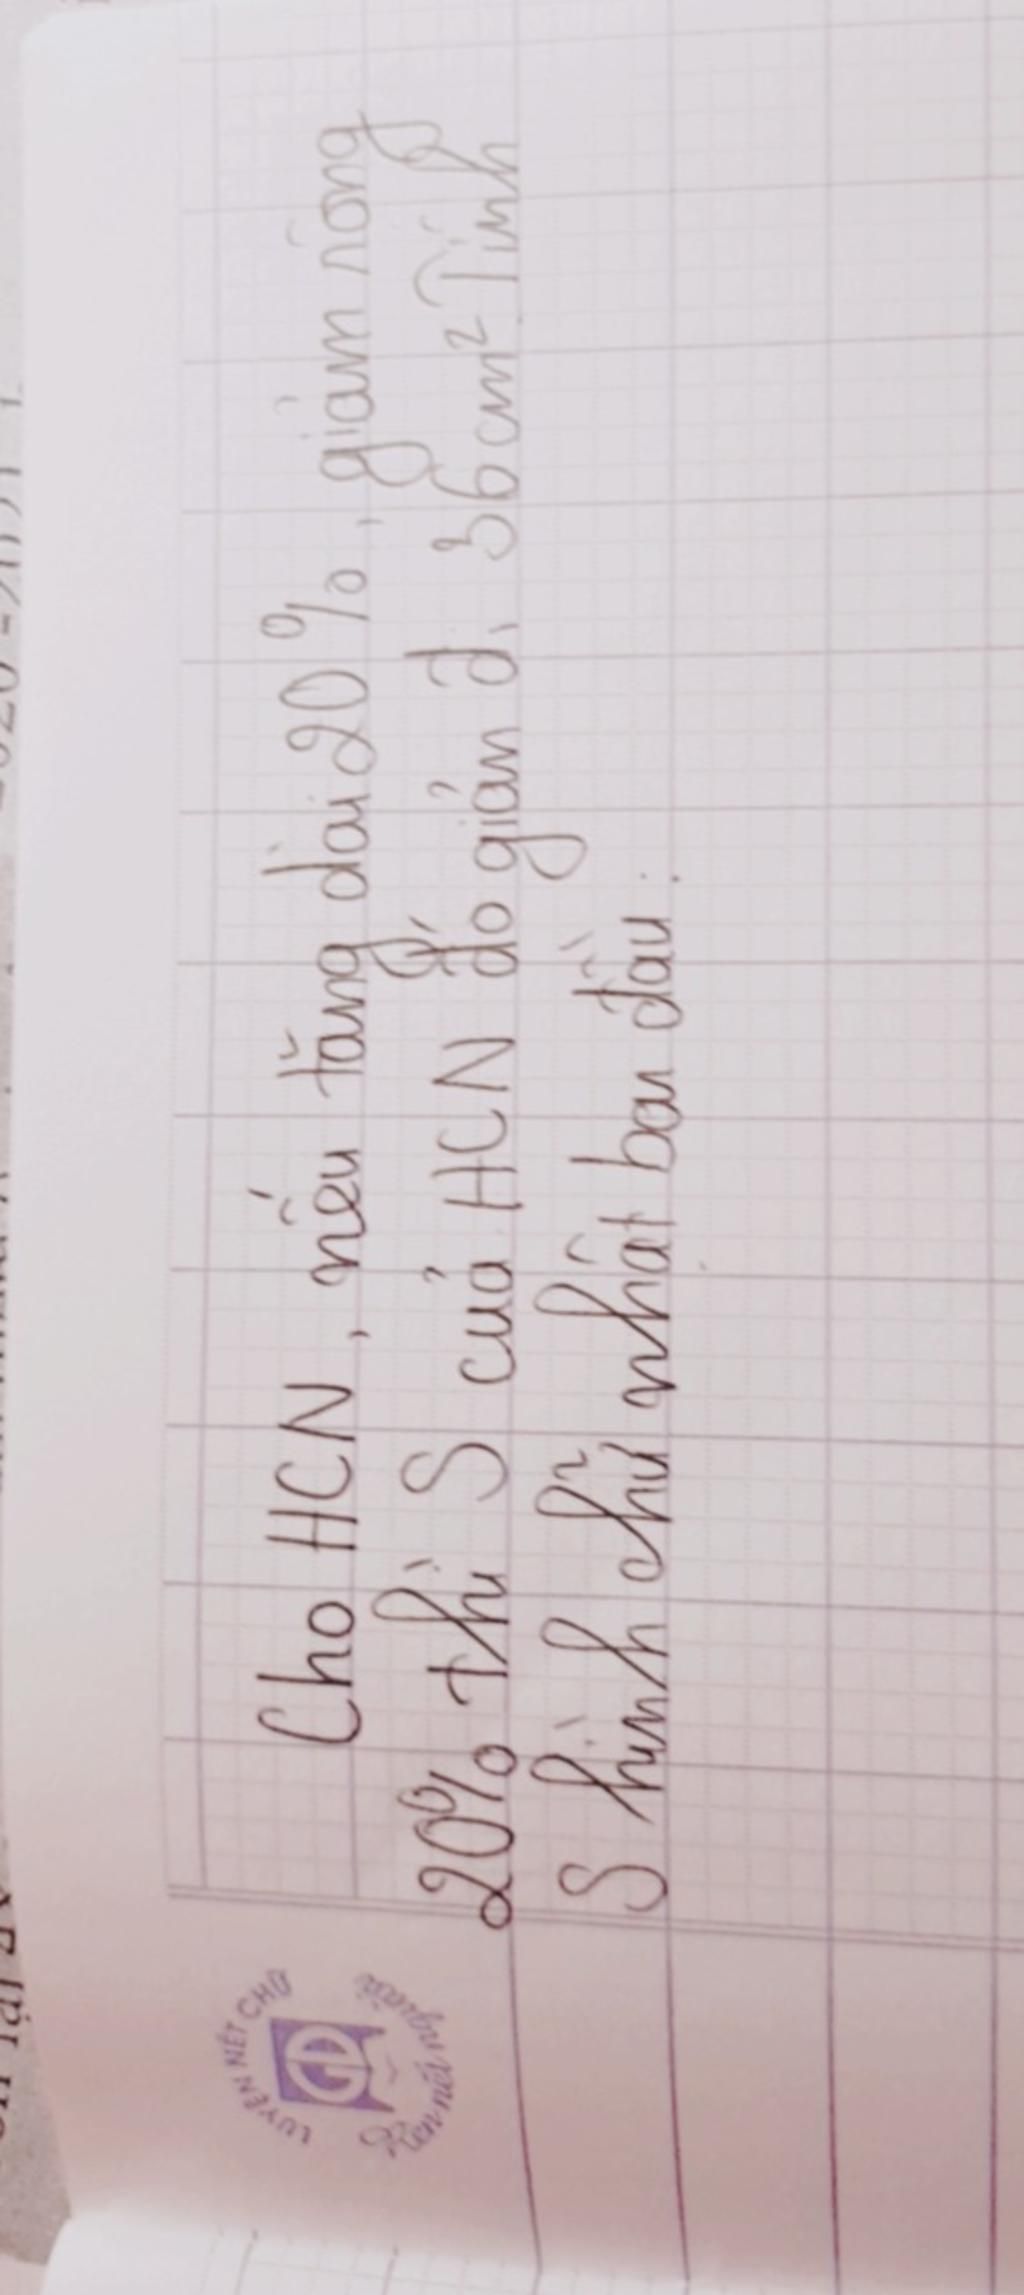 Cho HCN, nếu tăng dài 20%, giảm rộng
20% thì S của HCN đó giản đi 36cm² Tính
S hình chữ nhật ban đầu.
LUYỆN NÉT CHỮ
Rèn nết người